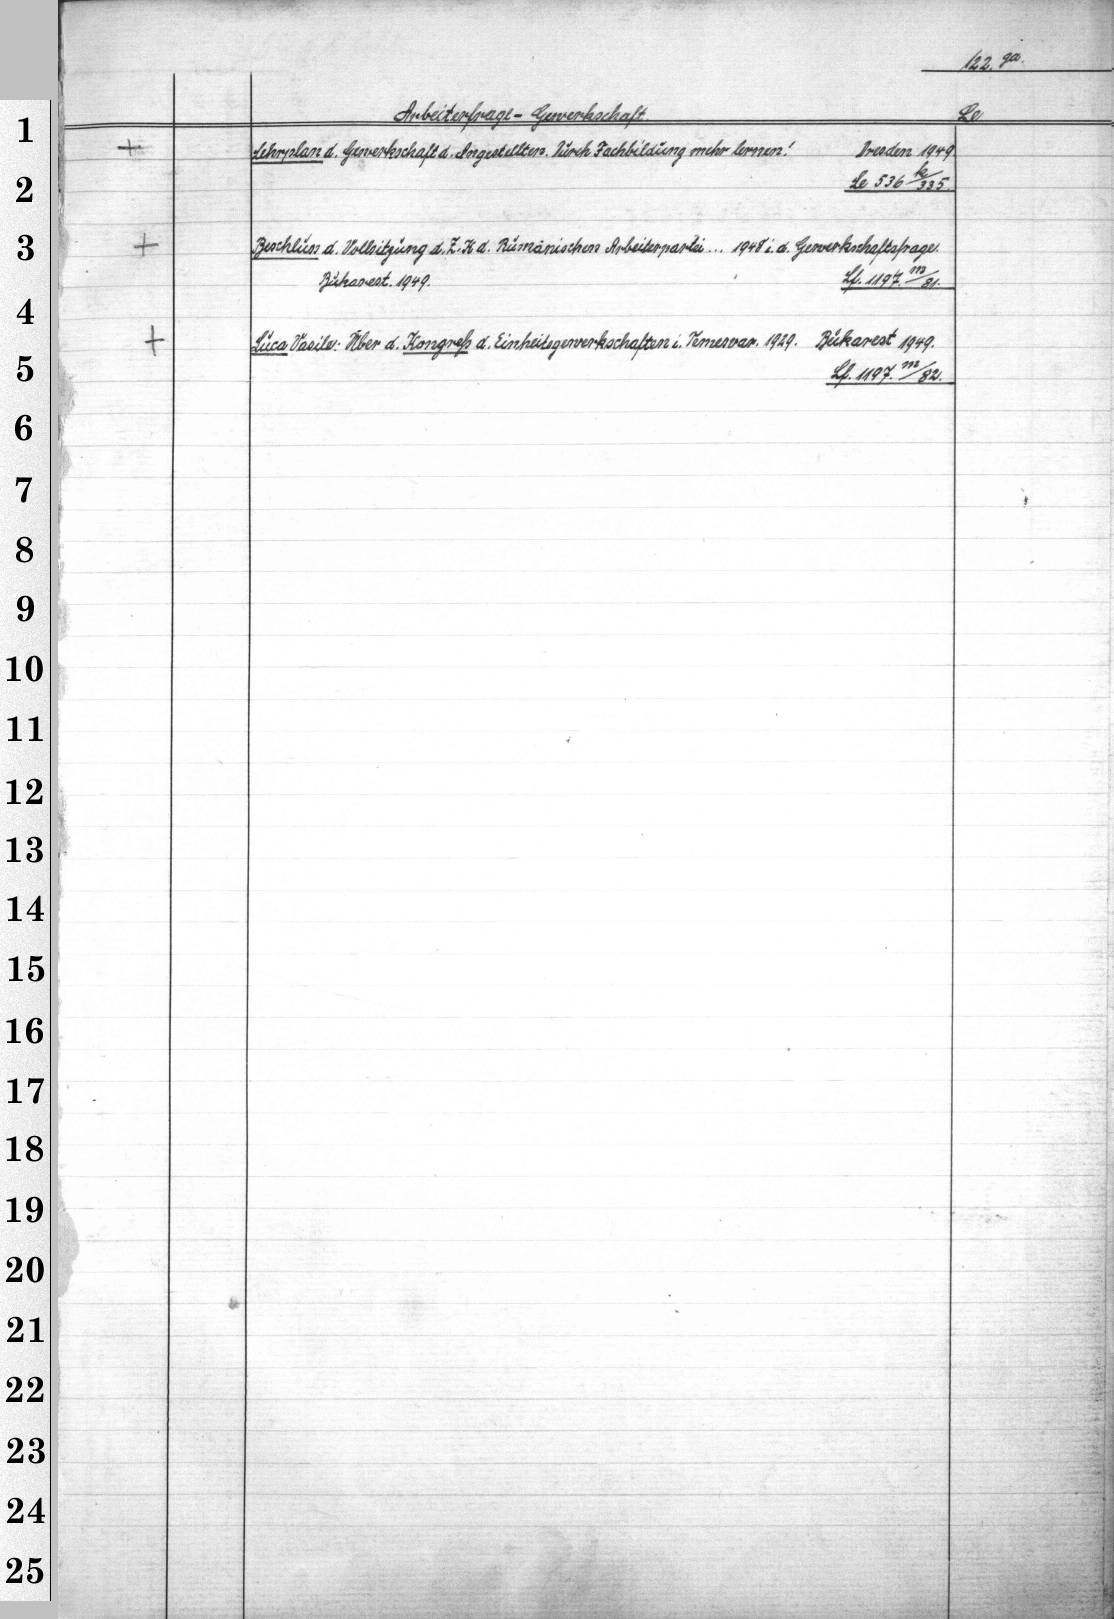 122. ga.
Arbeiterfrage - Gewerkschaft. Le
1
+ Lehrplan d. Gewerkschaft d. Angestellten. Durch Fachbildung mehr lernen! Dresden 1949
2 Le 536 k/335.
3 + Beschluss d. Vollsitzung d. Z.K d. Rumänischen Arbeiterpartei ... 1948 i. d. Gewerkschaftsfrage.
Bukarest. 1949. Lf. 1197. m/81.
4
+ Luca Vasile: Über d. Kongreß d. Einheitsgewerkschaften i. Temesvar. 1929. Bukarest 1949.
5 Lf. 1197. m/82.
6
7
8
9
10
11
12
13
14
15
16
17
18
19
20
21
22
23
24
25